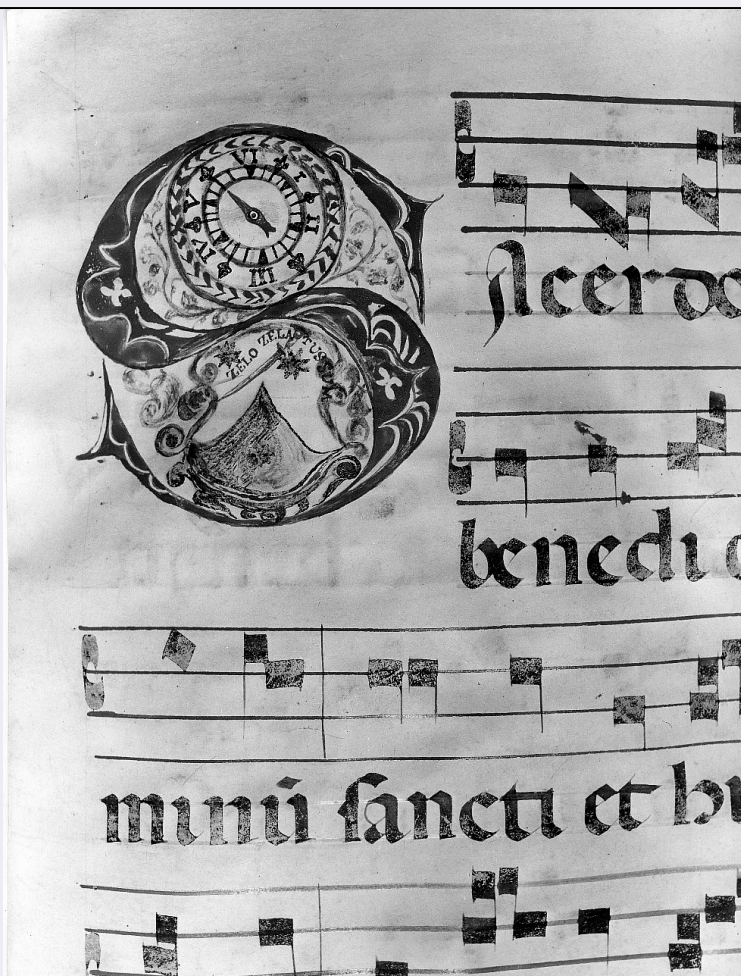 VI I II III IV V
ZELO ZELATUS
SAcerdo
benedi
minū ſancti et hu